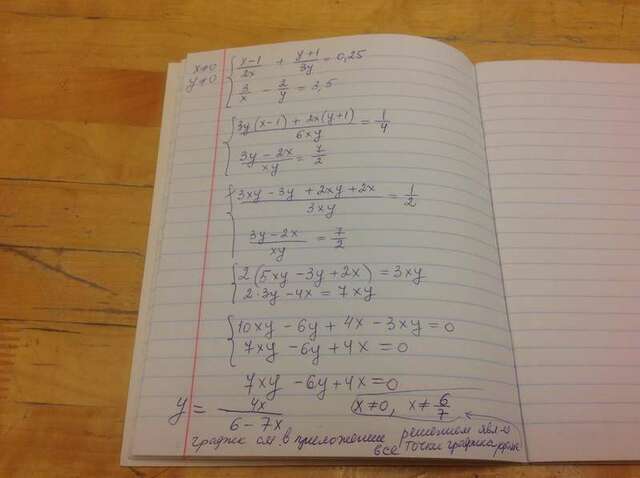 x≠0
y≠0
{ (x-1)/2x + (y+1)/3y = 0,25
3/x - 2/y = 3,5
{ (3y(x-1) + 2x(y+1))/6xy = 1/4
(3y-2x)/xy = 7/2
{ (3xy-3y+2xy+2x)/3xy = 1/2
(3y-2x)/xy = 7/2
{ 2(5xy-3y+2x) = 3xy
2·3y-4x = 7xy
{ 10xy-6y+4x-3xy=0
7xy-6y+4x=0
7xy-6y+4x=0
y = 4x/(6-7x) x≠0, x≠6/7
график см в приложение решением явл-я
все точки графика